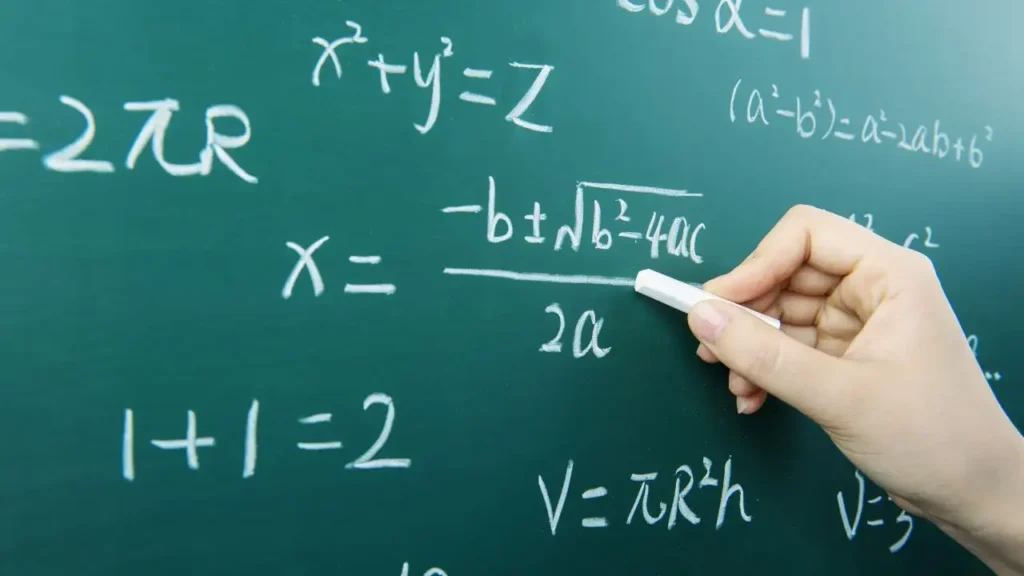 cos α=1
x²+y²=Z
(a²-b²)=a²-2ab+b²
=2πR
x= -b±√b²-4ac / 2a
1+1=2
V=πR²h
V=